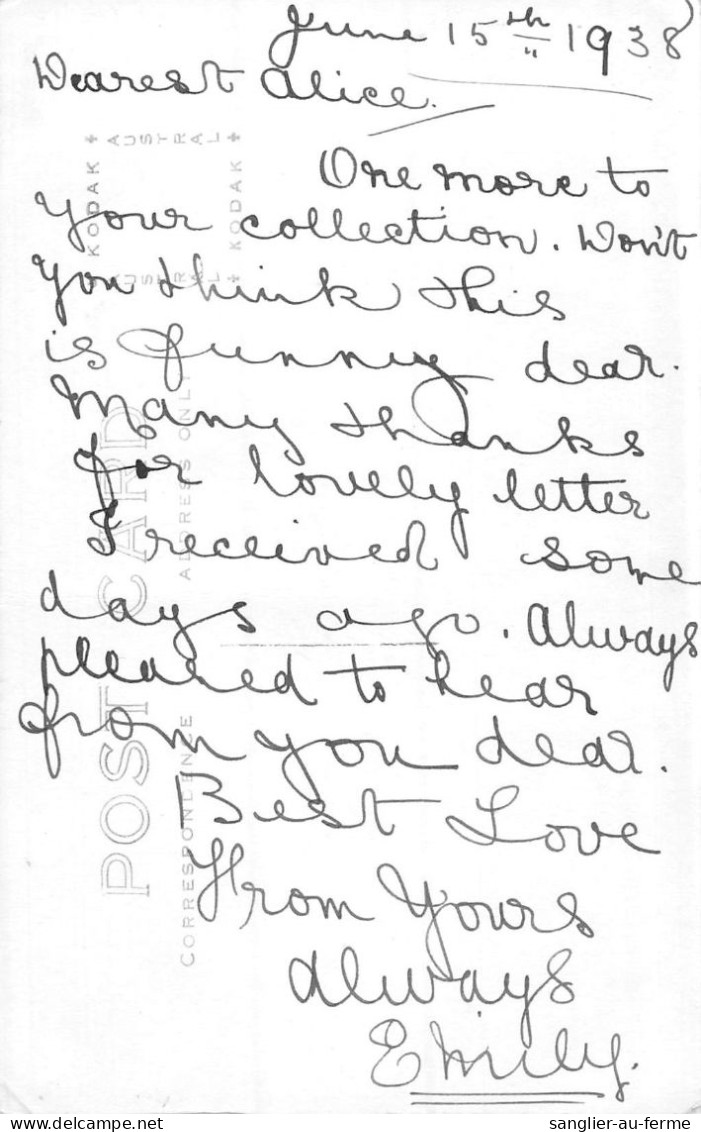 June 15th 1938
Dearest Alice.
One more to
your collection. Won't
you think this
is funny dear.
Many thanks
for lovely letter
I received some
days ago. Always
pleased to hear
from you dear.
Best Love
From Yours
Always
Emily.
POST CARD
CORRESPONDENCE
ADDRESS ONLY
KODAK
AUSTRAL
KODAK
AUSTRAL
sanglier-au-ferme